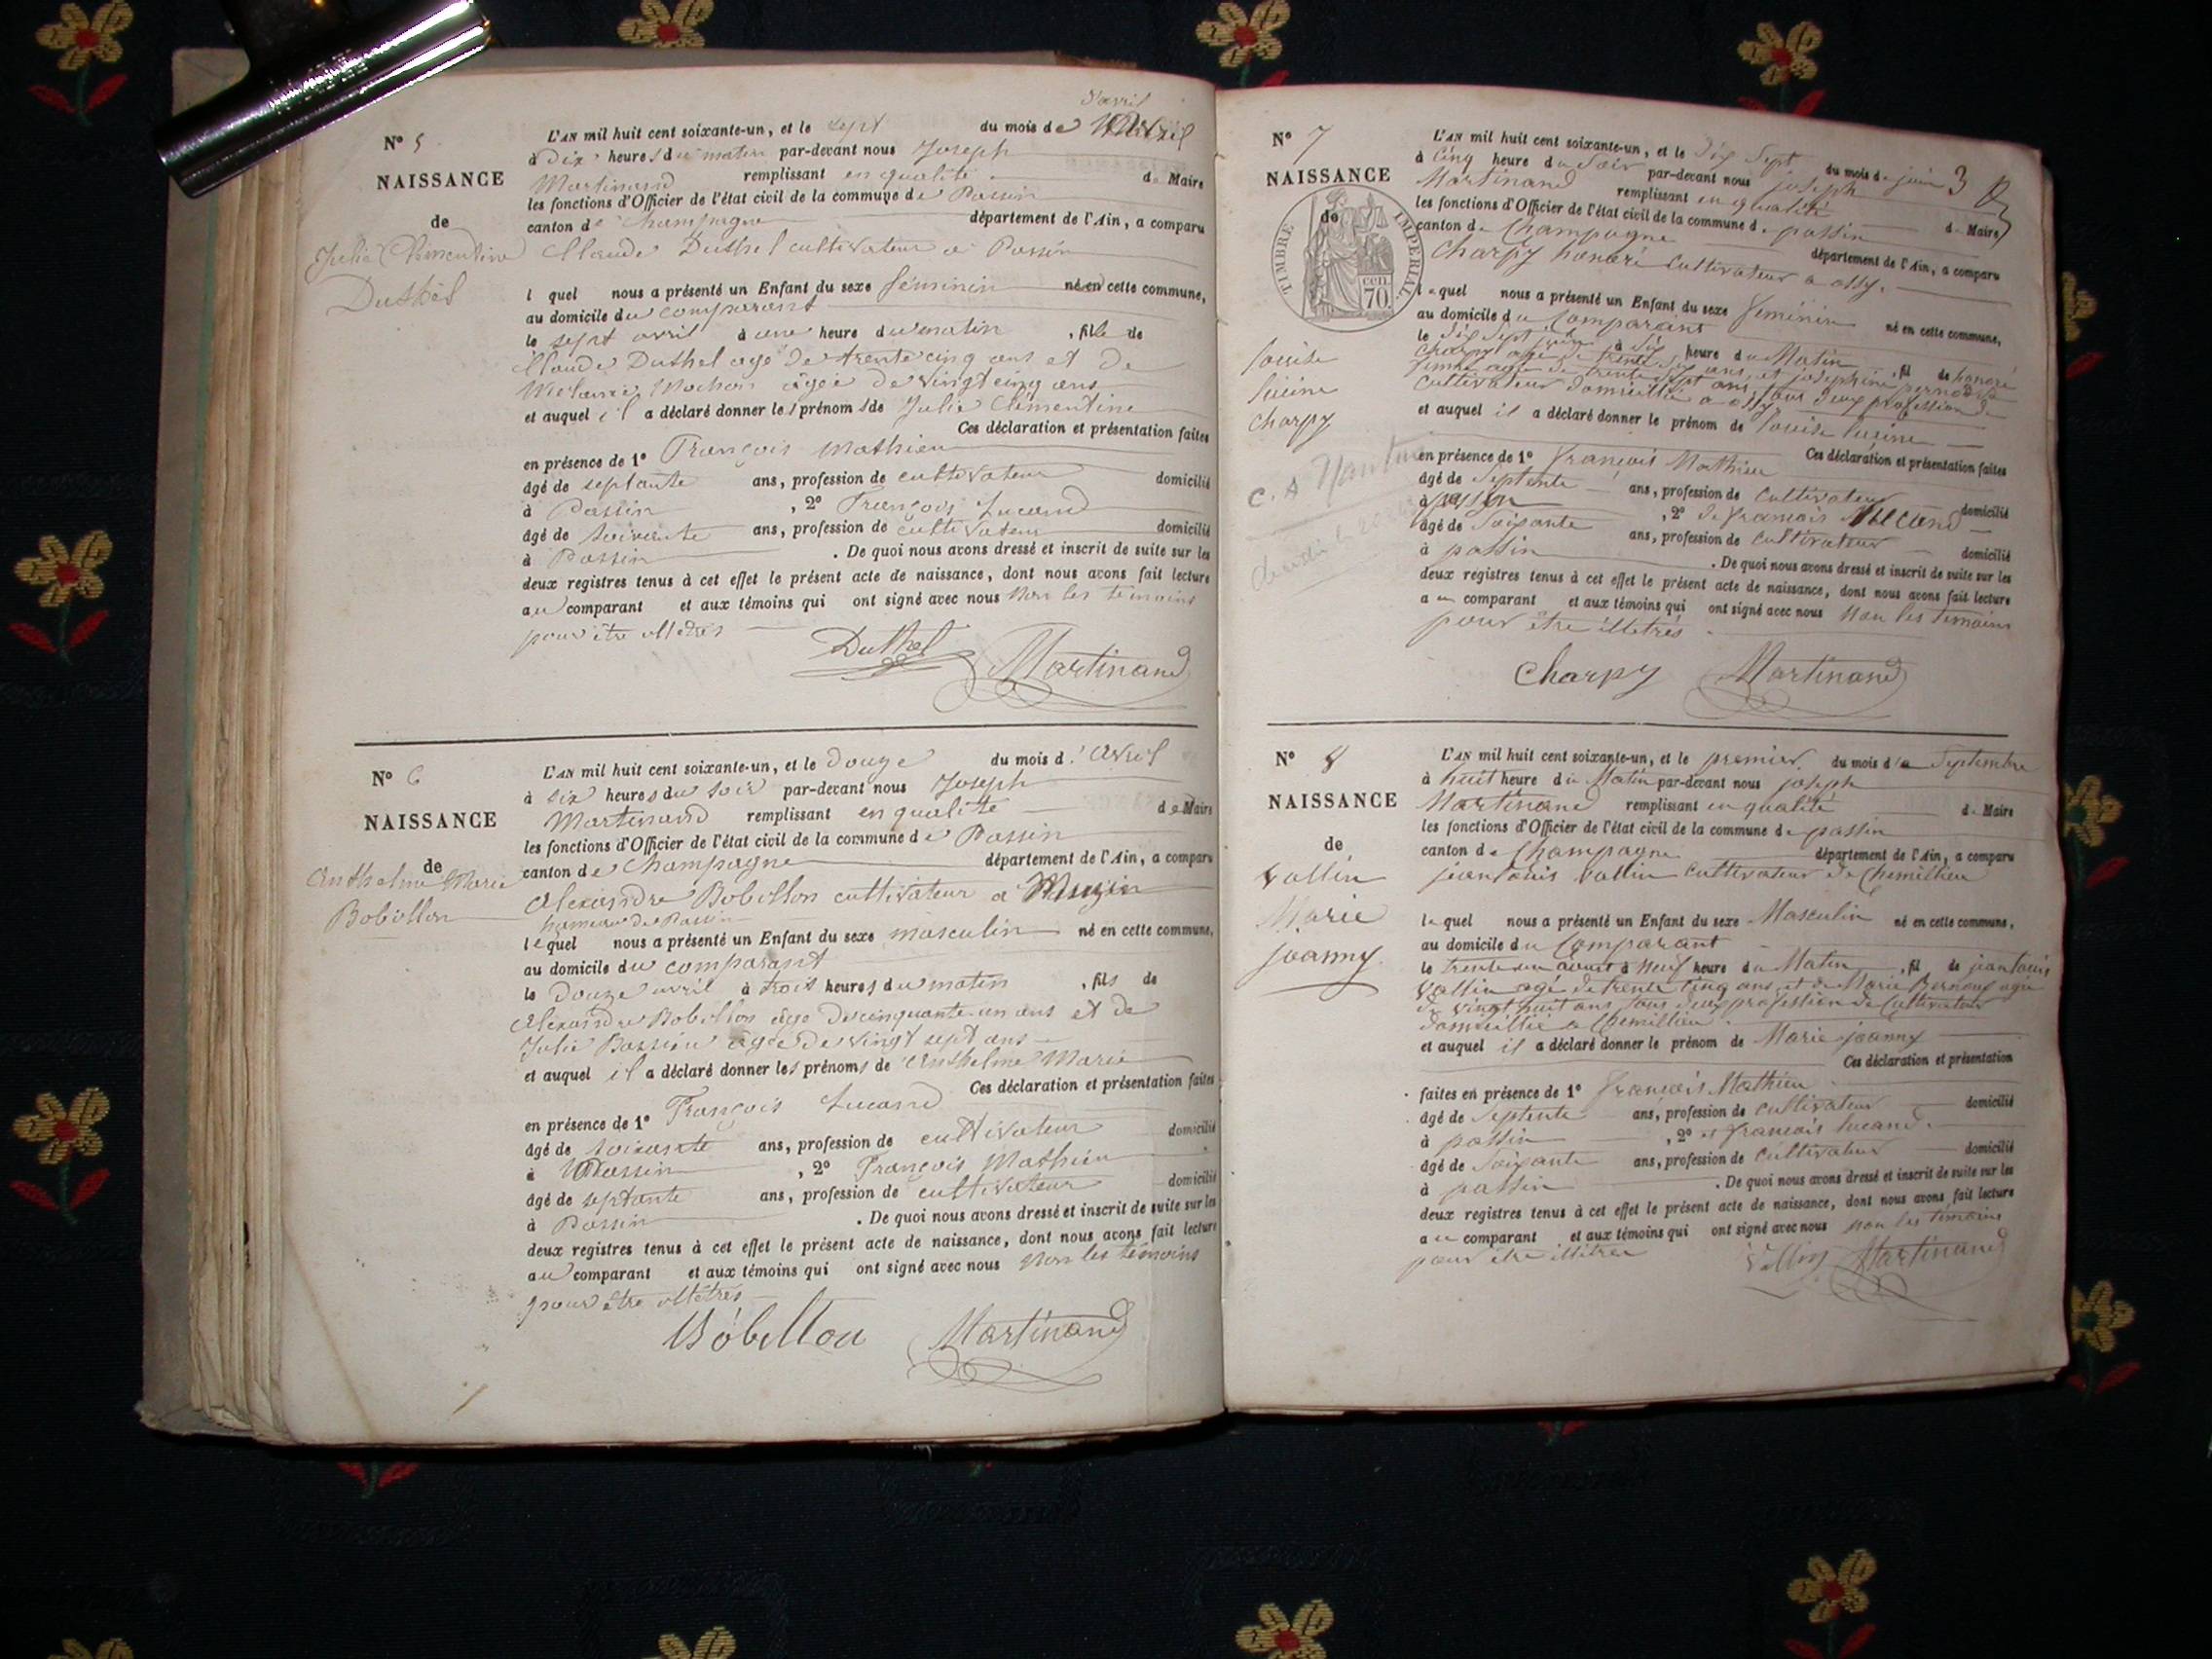 N° 5
NAISSANCE
de
Julie Clémentine
Duthel
d'avril
L'AN mil huit cent soixante-un, et le sept du mois de
à dix heures du matin par-devant nous Joseph
Martinand remplissant en qualité de Maire
les fonctions d'Officier de l'état civil de la commune de Passin
canton de Champagne département de l'Ain, a comparu
Claude Duthel cultivateur a Passin
l quel nous a présenté un Enfant du sexe féminin né en cette commune,
au domicile du comparant
le sept avril à une heure du matin, fille de
Claude Duthel agé de trente cinq ans et de
Melanie Mochon agée de vingt cinq ans
et auquel il a déclaré donner les prénoms de Julie Clémentine
Ces déclaration et présentation faites
en présence de 1° François Mathieu
âgé de septante ans, profession de cultivateur domicilié
à Passin, 2° François Lucand
âgé de soixante ans, profession de cultivateur domicilié
à Passin. De quoi nous avons dressé et inscrit de suite sur les
deux registres tenus à cet effet le présent acte de naissance, dont nous avons fait lecture
au comparant et aux témoins qui ont signé avec nous Non les témoins
pour être illetrés
Duthel Martinand
N° 6
NAISSANCE
de
Anthelme Marie
Bobillon
L'AN mil huit cent soixante-un, et le douze du mois d'Avril
à six heures du soir par-devant nous Joseph
Martinand remplissant en qualité de Maire
les fonctions d'Officier de l'état civil de la commune de Passin
canton de Champagne département de l'Ain, a comparu
Alexandre Bobillon cultivateur a Muzin
hameau de Passin
lequel nous a présenté un Enfant du sexe masculin né en cette commune,
au domicile du comparant
le douze avril à trois heures du matin, fils de
Alexandre Bobillon âgé de cinquante un ans et de
Julie Bassieu agée de vingt sept ans
et auquel il a déclaré donner les prénoms de Anthelme Marie
Ces déclaration et présentation faites
en présence de 1° François Lucand
âgé de soixante ans, profession de cultivateur domicilié
à Passin, 2° François Mathieu
âgé de septante ans, profession de cultivateur domicilié
à Passin. De quoi nous avons dressé et inscrit de suite sur les
deux registres tenus à cet effet le présent acte de naissance, dont nous avons fait lecture
au comparant et aux témoins qui ont signé avec nous Non les témoins
pour être illetrés
Bobillon Martinand
N° 7
NAISSANCE
de
TIMBRE IMPERIAL
70 cen.
3
Louise
lucine
charpy
L'AN mil huit cent soixante-un, et le dix sept du mois de juin
à cinq heure du Soir par-devant nous joseph
Martinand remplissant en qualité de Maire
les fonctions d'Officier de l'état civil de la commune de passin
canton de Champagne département de l'Ain, a comparu
Charpy honoré cultivateur a ossy.
le quel nous a présenté un Enfant du sexe féminin né en cette commune,
au domicile du Comparant
le dix sept juin à six heure du Matin, fil de honoré
charpy agé de trente six ans, et joséphine
femme agée de trente sept ans, tous deux profession de
cultivateur domicillié a ossy
et auquel il a déclaré donner le prénom de louise lucine
Ces déclaration et présentation faites
en présence de 1° françois Mathieu
âgé de Septente ans, profession de cultivateur domicilié
à passin, 2° de françois Lucand
âgé de Soixante ans, profession de cultivateur domicilié
à passin. De quoi nous avons dressé et inscrit de suite sur les
deux registres tenus à cet effet le présent acte de naissance, dont nous avons fait lecture
au comparant et aux témoins qui ont signé avec nous Non les témoins
pour être illetrés
charpy Martinand
N° 8
NAISSANCE
de
Vallin
Marie
joanny
L'AN mil huit cent soixante-un, et le premier du mois de Septembre
à huit heure du Matin par-devant nous joseph
Martinand remplissant en qualité de Maire
les fonctions d'Officier de l'état civil de la commune de passin
canton de Champagne département de l'Ain, a comparu
jean louis Vallin cultivateur de Chemillieu
le quel nous a présenté un Enfant du sexe Masculin né en cette commune,
au domicile du Comparant
le trente un aoust à neuf heure du Matin, fil de jean louis
Vallin agé de trente cinq ans, et de Marie Bernoux agée
de vingt huit ans tous deux profession de Cultivateur
domicillié a Chemillieu
et auquel il a déclaré donner le prénom de Marie joanny
Ces déclaration et présentation
faites en présence de 1° françois Mathieu
âgé de septente ans, profession de cultivateur domicilié
à passin, 2° et françois lucand.
âgé de Soixante ans, profession de cultivateur domicilié
à passin. De quoi nous avons dressé et inscrit de suite sur les
deux registres tenus à cet effet le présent acte de naissance, dont nous avons fait lecture
au comparant et aux témoins qui ont signé avec nous non les témoins
pour être illétrer
Vallin Martinand